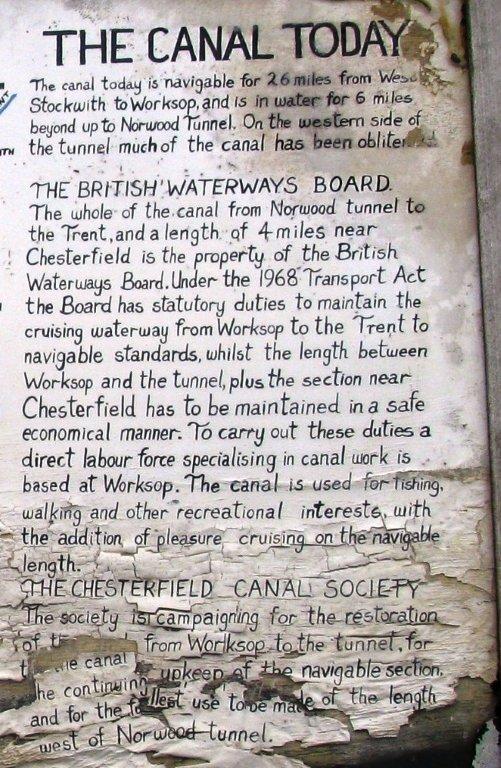 THE CANAL TODAY
The canal today is navigable for 26 miles from West
Stockwith to Worksop, and is in water for 6 miles
beyond up to Norwood Tunnel. On the western side of
the tunnel much of the canal has been obliter
THE BRITISH WATERWAYS BOARD.
The whole of the canal from Norwood tunnel to
the Trent, and a length of 4 miles near
Chesterfield is the property of the British
Waterways Board. Under the 1968 Transport Act
the Board has statutory duties to maintain the
cruising waterway from Worksop to the Trent to
navigable standards, whilst the length between
Worksop and the tunnel, plus the section near
Chesterfield has to be maintained in a safe
economical manner. To carry out these duties a
direct labour force specialising in canal work is
based at Worksop. The canal is used for fishing,
walking and other recreational interests, with
the addition of pleasure cruising on the navigable
length.
THE CHESTERFIELD CANAL SOCIETY
The society is campaigning for the restoration
of from Worlksop to the tunnel, for
canal upkeep of the navigable section,
he continuing
and for the fullest use to be made of the length
west of Norwood tunnel.